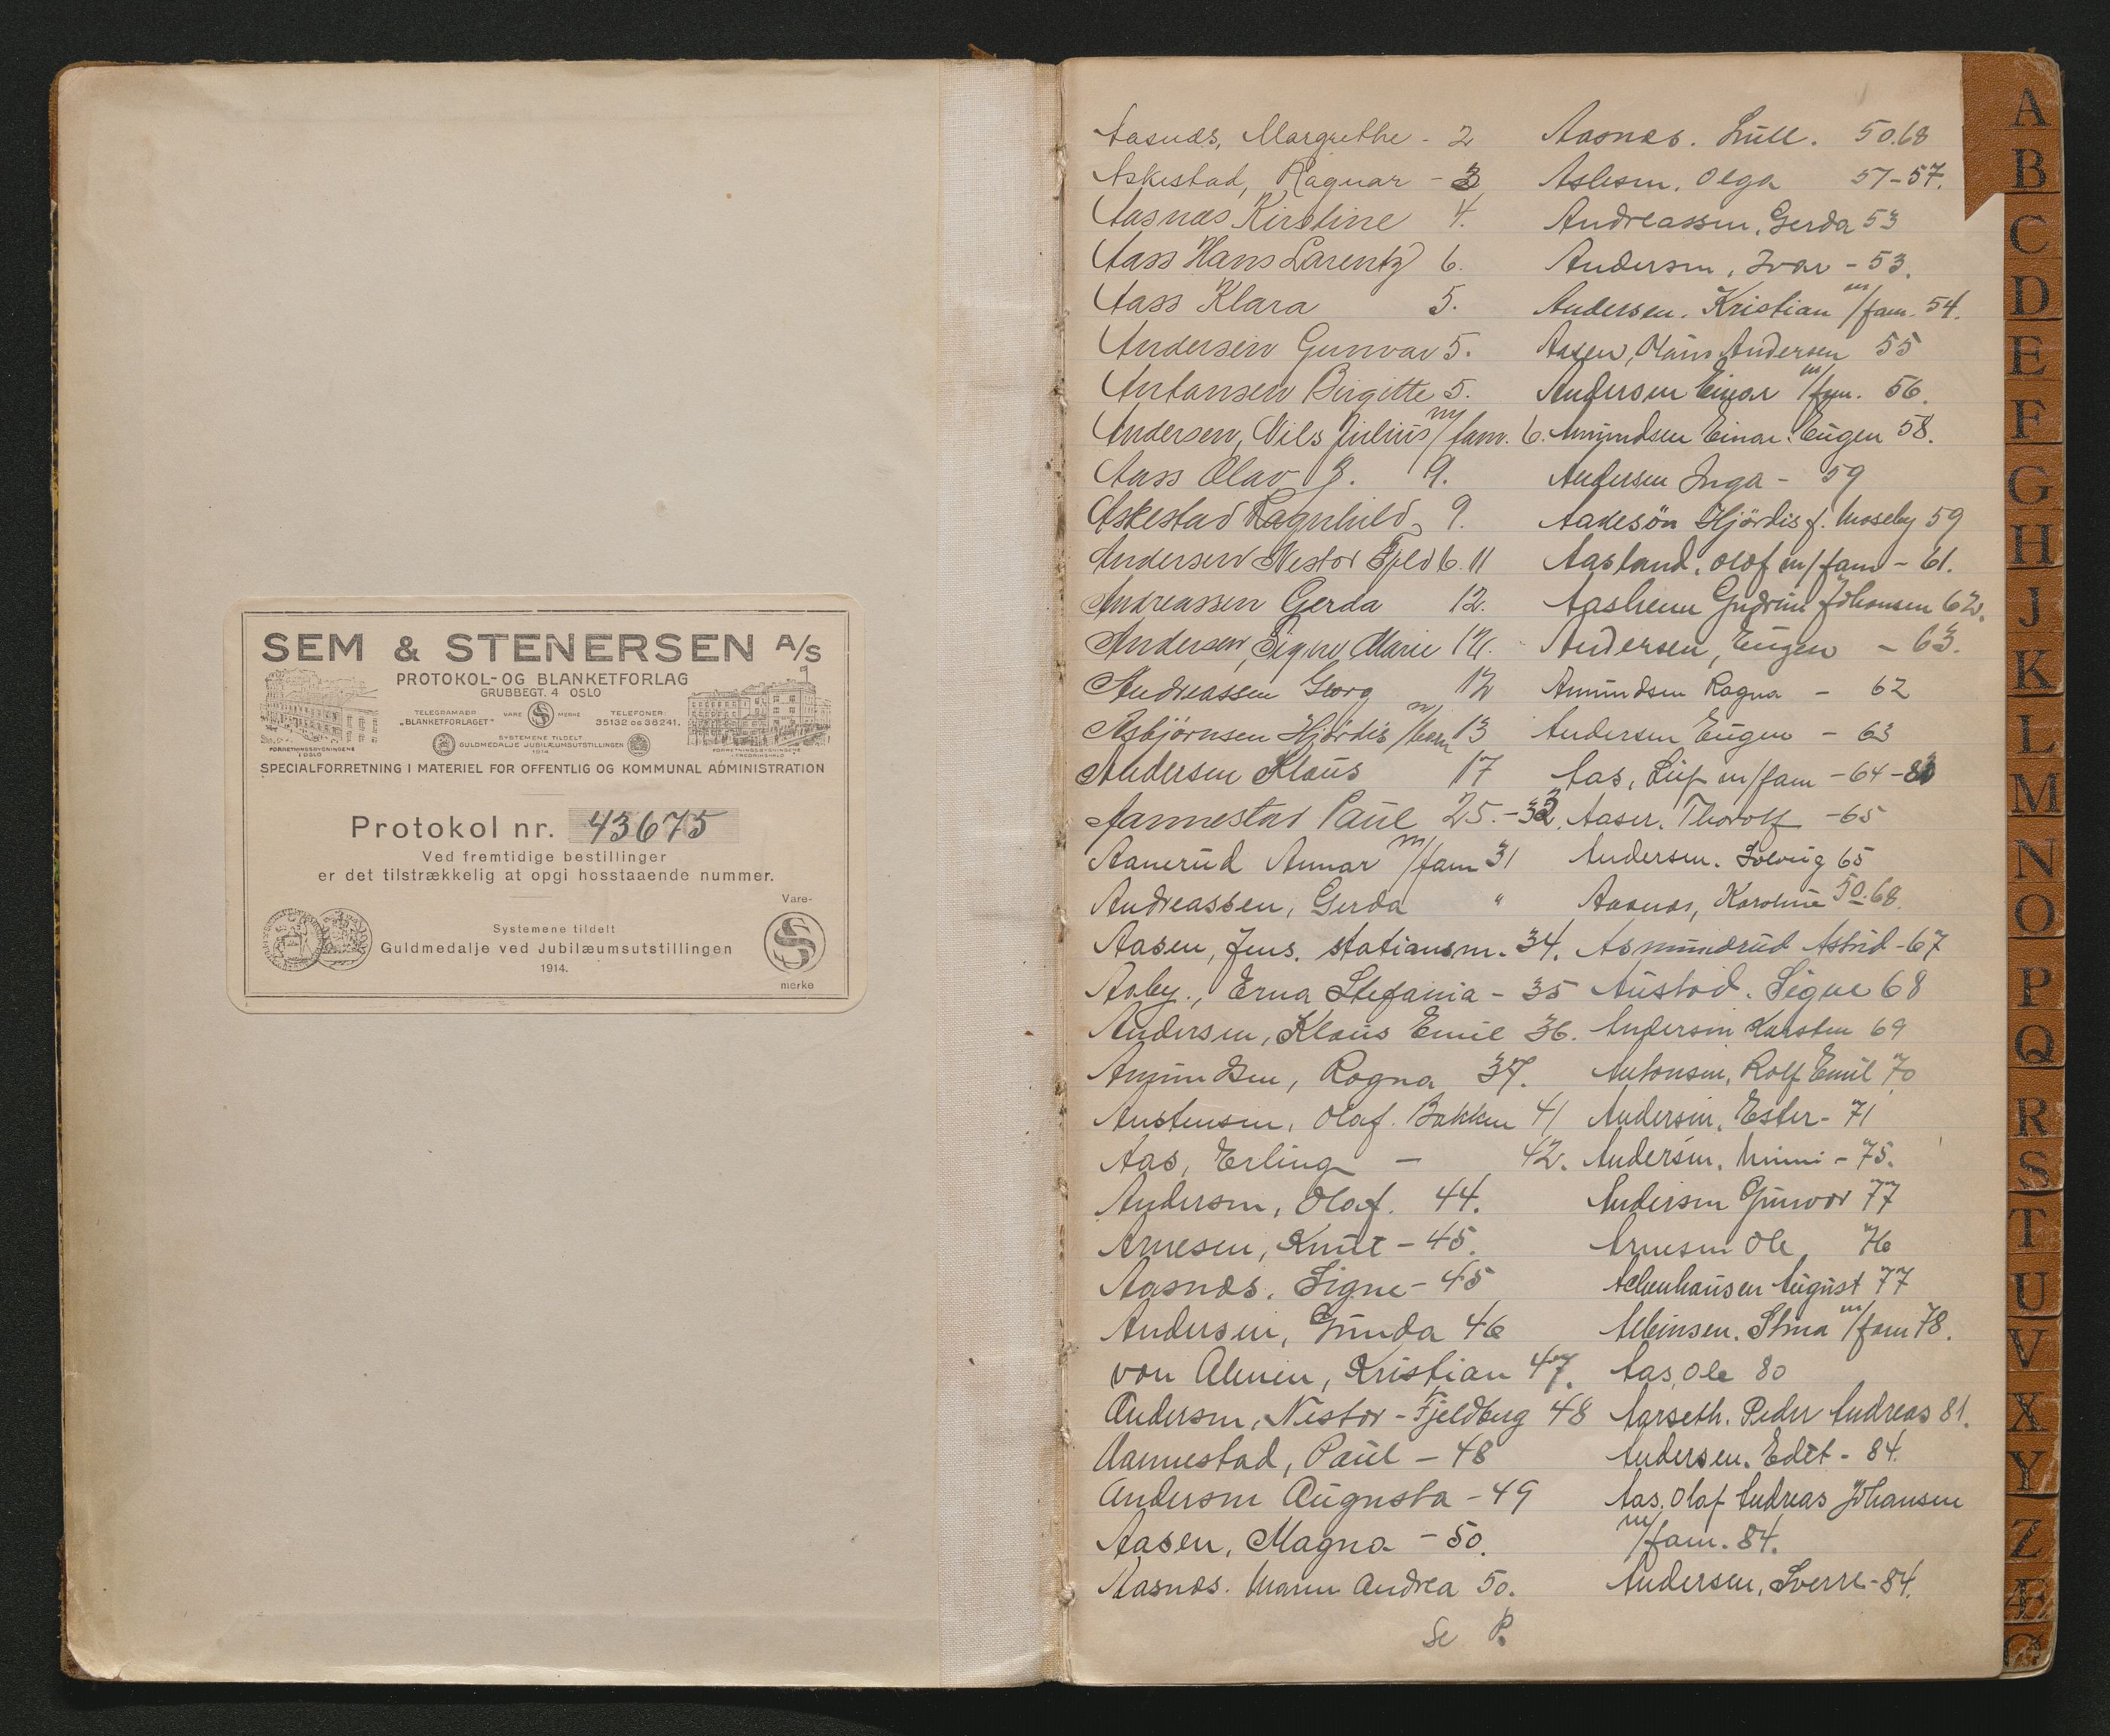 SEM & STENERSEN A/S
PROTOKOL- OG BLANKETFORLAG
GRUBBEGT. 4 OSLO
TELEGRAMADR
„BLANKETFORLAGET"
VARE
MERKE
TELEFONER:
35132 OG 36241.
SYSTEMENE TILDELT
GULDMEDALJE JUBILÆUMSUTSTILLINGEN
1914
FORRETNINGSBYGNINGENE
I OSLO
FORRETNINGSBYGNINGENE
SPECIALFORRETNING I MATERIEL FOR OFFENTLIG OG KOMMUNAL ADMINISTRATION
Protokol nr. 43675
Ved fremtidige bestillinger
er det tilstrækkelig at opgi hosstaaende nummer.
Systemene tildelt
Guldmedalje ved Jubilæumsutstillingen
1914.
Vare-
merke
Aasnæs, Margrethe - 2
Askestad, Ragnar - 3
Aasnæs Kirstine 4.
Aass Hans Larentz 6.
Aass Klara 5.
Andersen Gunvar 5.
Antonsen Birgitte 5.
Andersen, Nils Julius m/fam. 6.
Aass Olav J. 9.
Askestad Ragnhild 9.
Andersen Nestor Fjeldb. 11
Andreassen Gerda 12.
Andersen, Signe Marie 12.
Andreassen Georg 12
Asbjørnsen Hjørdis m/barn 13
Andersen Klaus 17
Aannestad Paul 25.-32.
Aanerud Annar m/fam 31
Andreassen, Gerda "
Aasen, Jens. stationsm. 34.
Aaby., Erna Stefania - 35
Andersen, Klaus Emil 36.
Amundsen, Ragna 37.
Austensen, Olaf. Bakken 41
Aas, Erling - 42.
Andersen, Olaf. 44.
Arnesen, Knut - 45.
Aasnæs. Signe - 45
Andersen, Gunda 46
von Ahnen, Kristian 47.
Andersen, Nestor - Fjeldberg 48
Aannestad, Paul - 48
Andersen Augusta - 49
Aasen, Magna - 50.
Aasnæs. Maren Andrea 50.
Se P.
Aasnæs. Lull. 50.68
Aslesen, Olga 57-57.
Andreassen, Gerda 53
Andersen, Ivar - 53.
Andersen. Kristian m/fam. 54.
Aasen, Hans Andersen 55
Andersen Einar m/fam. 56.
Amundsen Einar. Eugen 58.
Andersen Inga - 59
Aakesøn Hjørdis f. Moseby 59
Aasland, Olaf m/fam - 61.
Aasheim Gudrun Johansen 62.
Andersen, Eugen - 63.
Amundsen Ragna - 62
Andersen Eugen - 63
Aas, Leif m/fam - 64-83
Aaser. Thorolf - 65
Andersen. Solveig 65
Aasnæs, Karoline 50.68.
Asmundrud Astrid - 67
Austad. Signe 68
Andersen Karsten 69
Antonsen, Rolf Emil 70
Andersen, Ester - 71
Andersen. Mimmi - 75.
Andersen Gunvor 77
Arnesen Ole 76
Achenhausen August 77
Albinsen. Stina m/fam 78.
Aas, Ole 80
Aarseth. Peder Andreas 81.
Andersen. Edit - 84.
Aas. Olaf Andreas Johansen
m/fam. 84.
Andersen, Sverre - 84.
A
B
C
D
E
F
G
H
J
K
L
M
N
O
P
Q
R
S
T
U
V
X
Y
Z
Æ
Ø